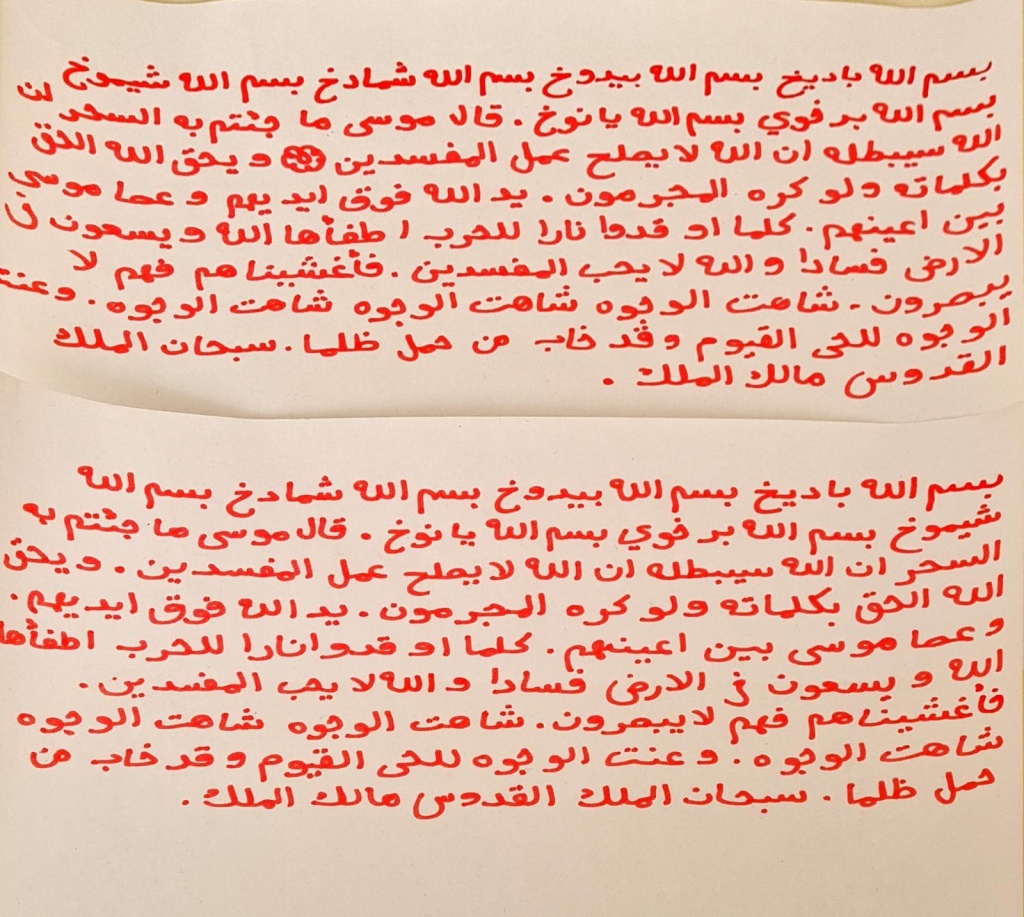 بسم الله باديخ بسم الله بيدوخ بسم الله شمادخ بسم الله شيموخ
بسم الله برفوي بسم الله يانوخ . قال موسى ما جئتم به السحر ان
الله سيبطله ان الله لا يصلح عمل المفسدين و يحق الله الحق
بكلماته ولو كره المجرمون . يد الله فوق ايديهم و عصا موسى
بين اعينهم . كلما او قدوا نارا للحرب ا طفأها الله و يسعون في
الارض فسادا و الله لا يحب المفسدين . فأغشيناهم فهم لا
يبصرون . شاهت الوجوه شاهت الوجوه شاهت الوجوه . وعنت
الوجوه للحى القيوم وقد خاب من حمل ظلما . سبحان الملك
القدوس مالك الملك .
بسم الله باديخ بسم الله بيدوخ بسم الله شمادخ بسم الله
شيموخ بسم الله برفوي بسم الله يانوخ . قال موسى ما جئتم به
السحر ان الله سيبطله ان الله لا يصلح عمل المفسدين . و يحق
الله الحق بكلماته ولو كره المجرمون . يد الله فوق ايديهم .
و عصا موسى بين اعينهم . كلما او قدوا نارا للحرب اطفأها
الله و يسعون في الارض فسادا و الله لا يحب المفسدين .
فأغشيناهم فهم لا يبصرون . شاهت الوجوه شاهت الوجوه
شاهت الوجوه . و عنت الوجوه للحى القيوم وقد خاب من
حمل ظلما . سبحان الملك القدوس مالك الملك .